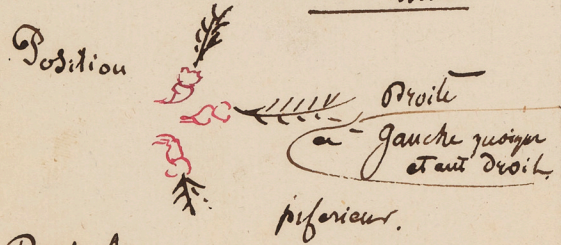 Position
Droite
a - gauche quoique
étant droit.
inferieur.